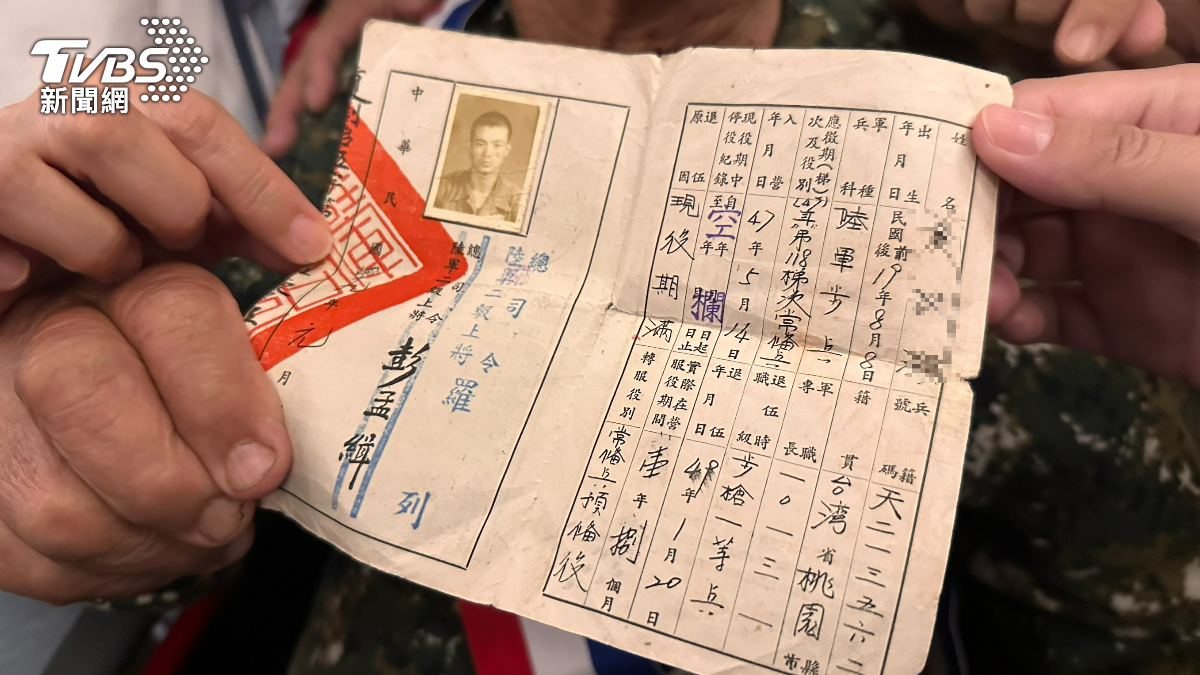 TVBS
新聞網
姓名
出生年月日 民國前後19年8月8日
軍種兵科 陸軍步兵
應徵期(梯)次及役別 47年第118梯次常備兵
入營年月日 47年5月14日
現役期中停役紀錄 自至年年月日起日止 空欄
退伍原因 現役期滿
兵籍號碼 天二一三五六一二
籍貫 台灣省桃園縣市
軍職專長 一〇一三一
退伍時職級 步槍一等兵
退伍年月日 48年1月20日
實際在營服役期間 壹年捌個月
轉服役別 常備兵預備役
總司令
陸軍二級上將 羅列
總司令
陸軍二級上將 彭孟緝
中華民國 年元月